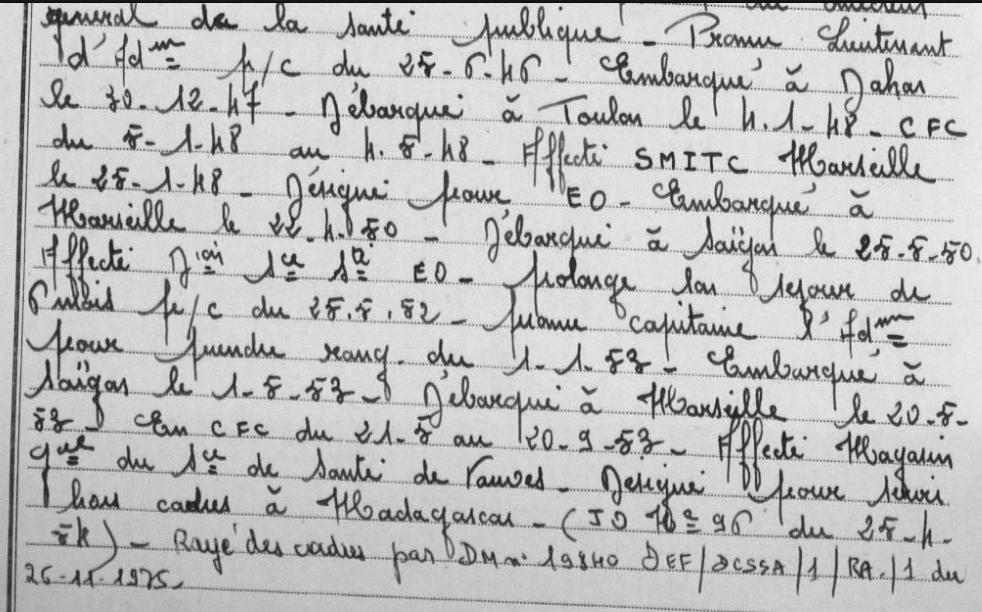 général de la santé publique - Promu Lieutenant
d'Adm p/c du 25-6-46 - Embarqué à Dakar
le 30-12-47 - Débarqué à Toulon le 4.1-48 - CFC
du 5-1-48 au 4.5-48 - Affecté SMITC Marseille
le 25-1-48 - Désigné pour EO - Embarqué à
Marseille le 22.4.50 - Débarqué à Saïgon le 25-5-50.
Affecté Don Sce Sté EO - prolonge son séjour de
6 mois p/c du 25.5.52 - promu capitaine d'Adm
pour prendre rang du 1-1-53 - Embarqué à
Saïgon le 1-5-53 - Débarqué à Marseille le 20-5-
53 - En CFC du 21-5 au 20-9-53 - Affecté Magasin
gal du Sce de Santé de Vanves - Désigné pour servir
hors cadres à Madagascar - (JO No 96 du 25-4-
54) - Rayé des cadres par DM n° 19840 DEF/DCSSA/1/RA./1 du
26-11-1975.